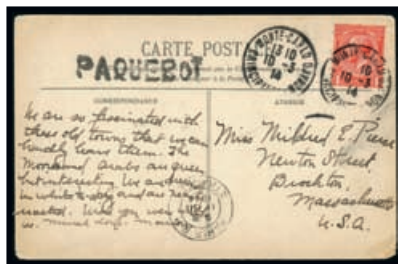 CARTE POSTALE
PAQUEBOT
MONTE-CARLO
13 10
10 -3
14
MONTE-CARLO
10
10 -3
14
CORRESPONDANCE
ADRESSE
We are so fascinated with
these old towns that we can
hardly leave them. The
Moors and Arabs are queer
but interesting. We are
in white to-day and are
roasted. Wish you were
us.
Miss Mildred E. Pierce
Newton Street,
Brockton,
Massachusetts
U.S.A.